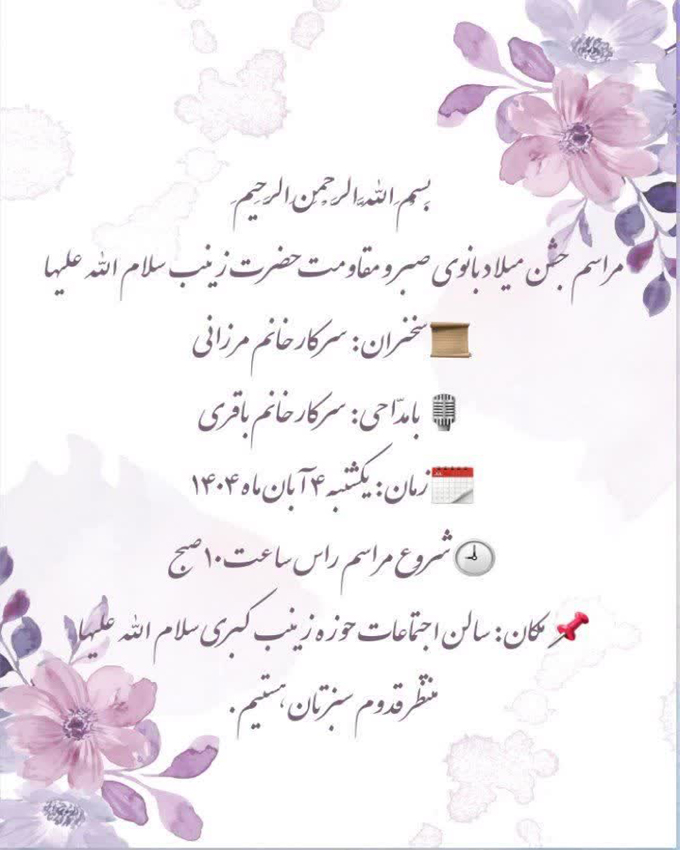 بِسْمِ اللَّهِ الرَّحْمنِ الرَّحِيمِ
مراسم جشن میلاد بانوی صبر و مقاومت حضرت زینب سلام الله علیها
سخنران: سرکار خانم مرزانی
بامدّاحی: سرکار خانم باقری
زمان: یکشنبه ۴ آبان ماه ۱۴۰۴
شروع مراسم راس ساعت ۱۰ صبح
مکان: سالن اجتماعات حوزه زینب کبری سلام الله علیها
منتظر قدوم سبزتان هستیم.